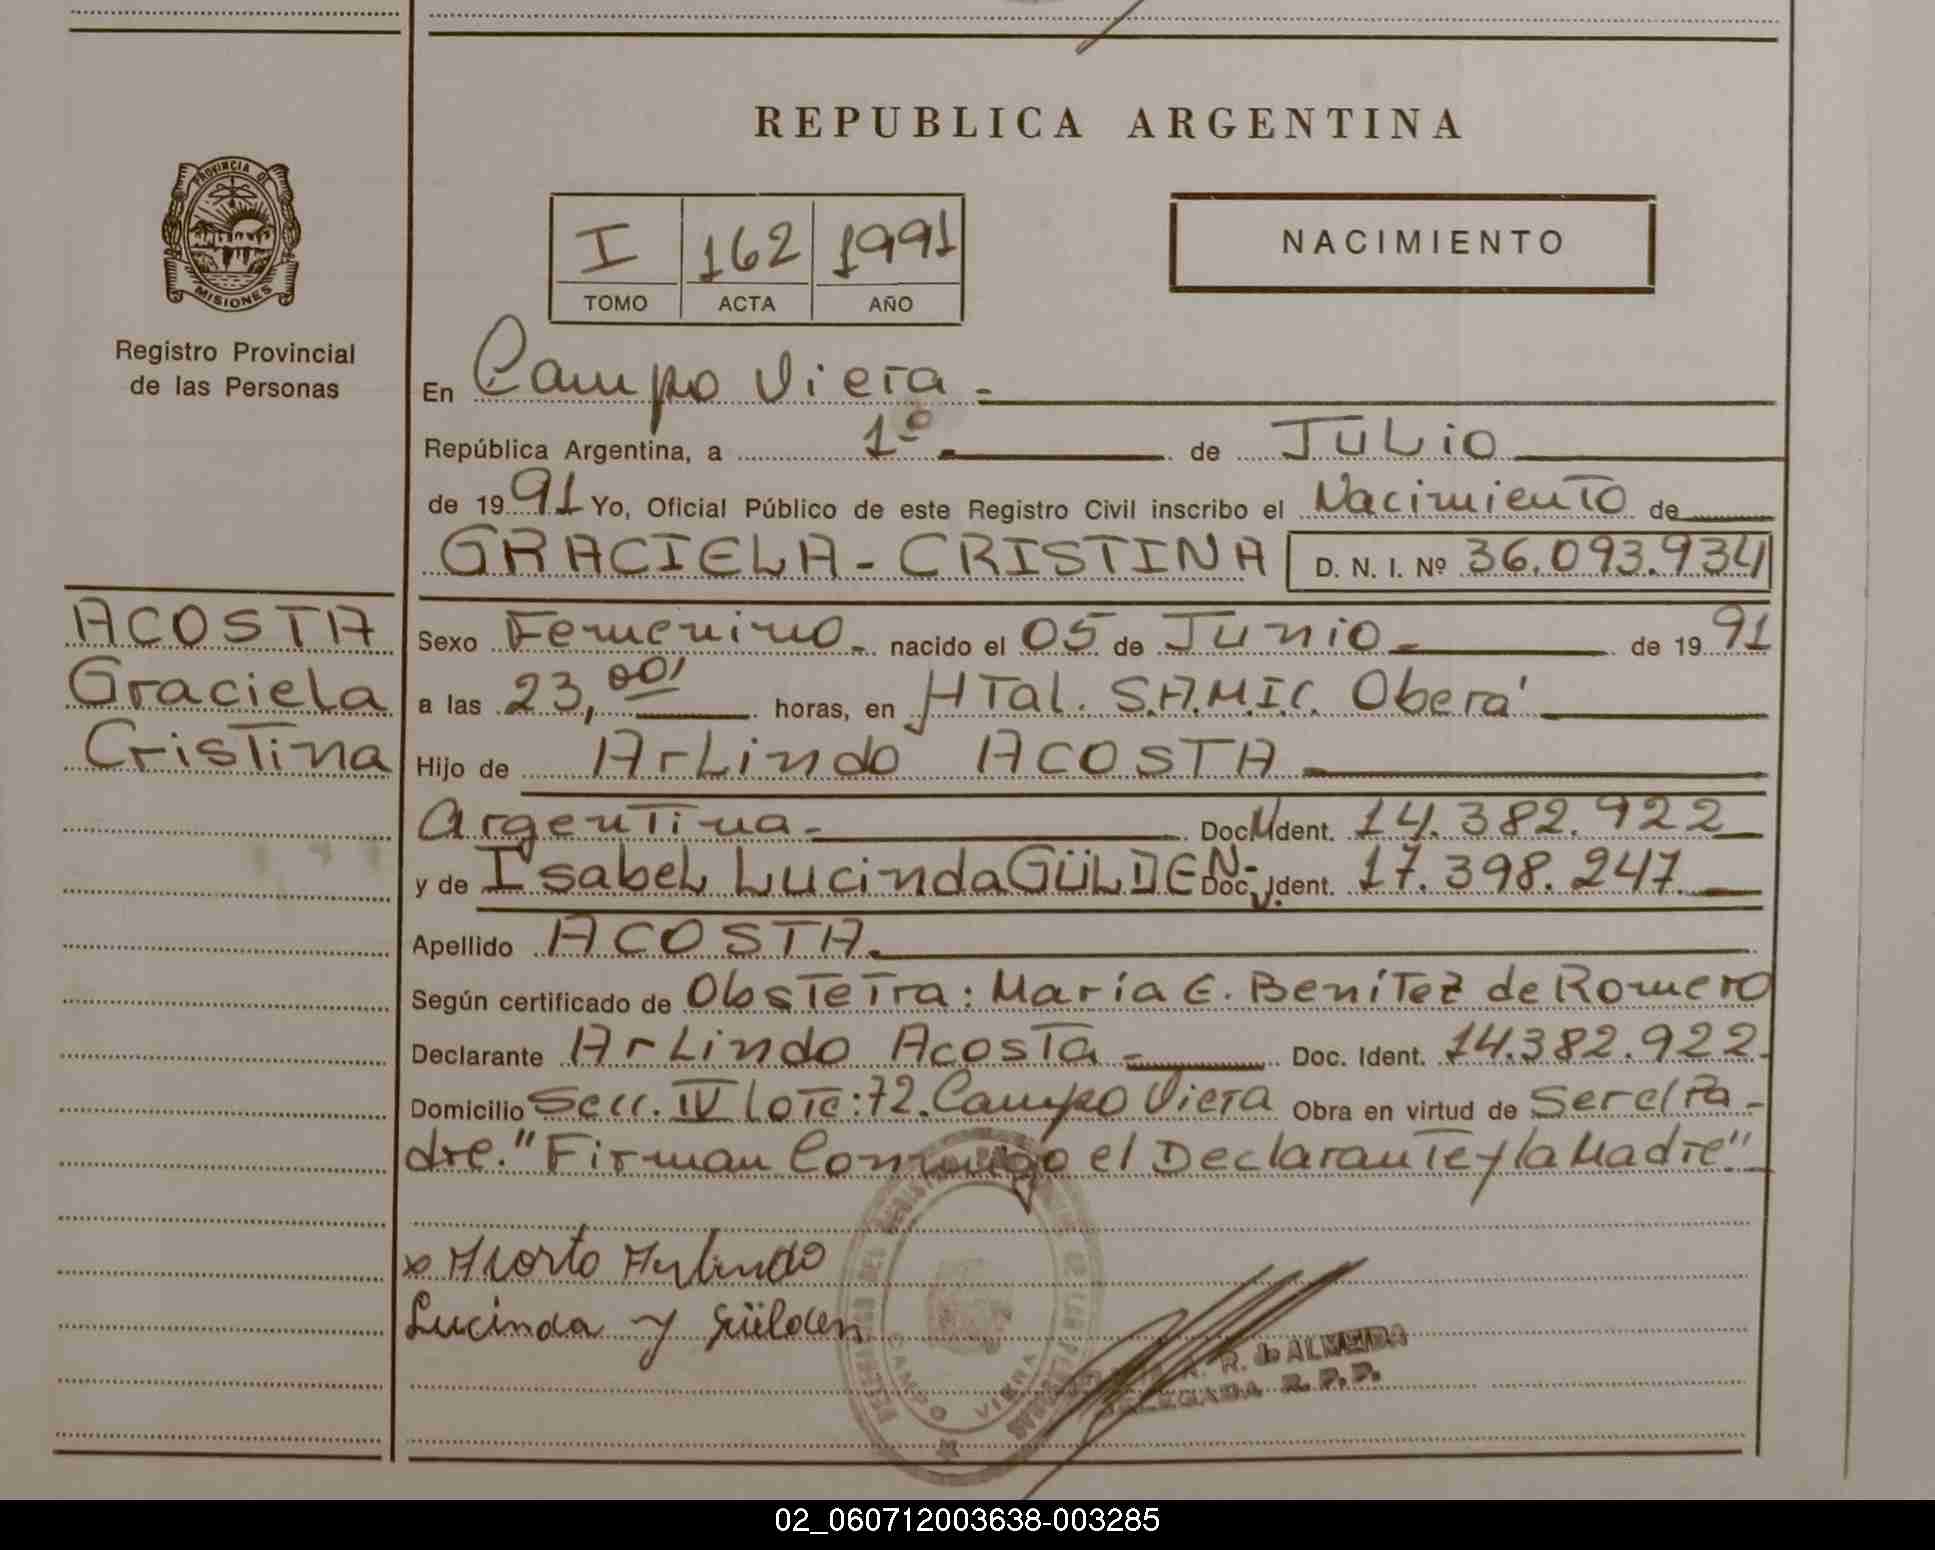 REPUBLICA ARGENTINA
PROVINCIA D
MISIONES
Registro Provincial
de las Personas
I 162 1991
TOMO ACTA AÑO
NACIMIENTO
En Campo Viera -
República Argentina, a 1º de Julio
de 1991 Yo, Oficial Público de este Registro Civil inscribo el Nacimiento de
GRACIELA - CRISTINA D. N. I. Nº 36.093.934
ACOSTA
Graciela
Cristina
Sexo Femenino - nacido el 05 de Junio - de 1991
a las 23,00' horas, en HTal. S.A.M.I.C. Oberá
Hijo de Arlindo ACOSTA
Argentina - Doc. Ident. 14.382.922
y de Isabel Lucinda GÜLDEN - Doc. Ident. 17.398.247
Apellido ACOSTA
Según certificado de Obstetra: María E. Benítez de Romero
Declarante Arlindo Acosta - Doc. Ident. 14.382.922
Domicilio Secc. IV Lote: 72. Campo Viera Obra en virtud de Ser el Pa-
dre. "Firman Conmigo el Declarante y la Madre"
x Acosta Arlindo
Lucinda y Gülden
CAMPO VIERA
R. de ALMEIDA
DELEGADA R. P. P.
02_060712003638-003285